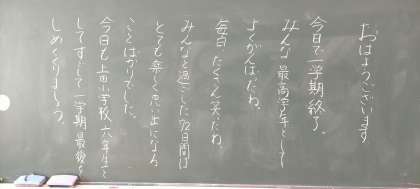 おはようございます
今日で一学期終了。
みんな最高学年として
よくがんばったね。
毎日たくさん笑ったね。
みんなと過ごした72日間は
とても楽しく思い出になる
ことばかりでした。
今日も上田小学校六年生と
してすごして一学期最後を
しめくくりましょう。